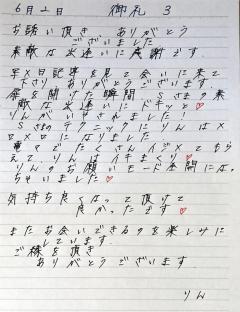 6月2日 御礼 3
お誘い頂き ありがとう
ございました
素敵な出逢いに感謝です
写メ日記等を見て会いに来て
下さりありがとうございます
傘を開けた瞬間 Sさまの素
敵な出逢いにドキッと♡
りんがいやされました!
SさまのテクニックにりんはX
ロXロになりました
電マでたくさんイジメてもら
えて、りんはイキまくり♡
りんのお願いモード全開にな
っちゃいました♡
気持ち良くなって頂けて
良かったです♡
またお会いできるのを楽しみに
しています
ご縁を頂き
ありがとうございます
りん